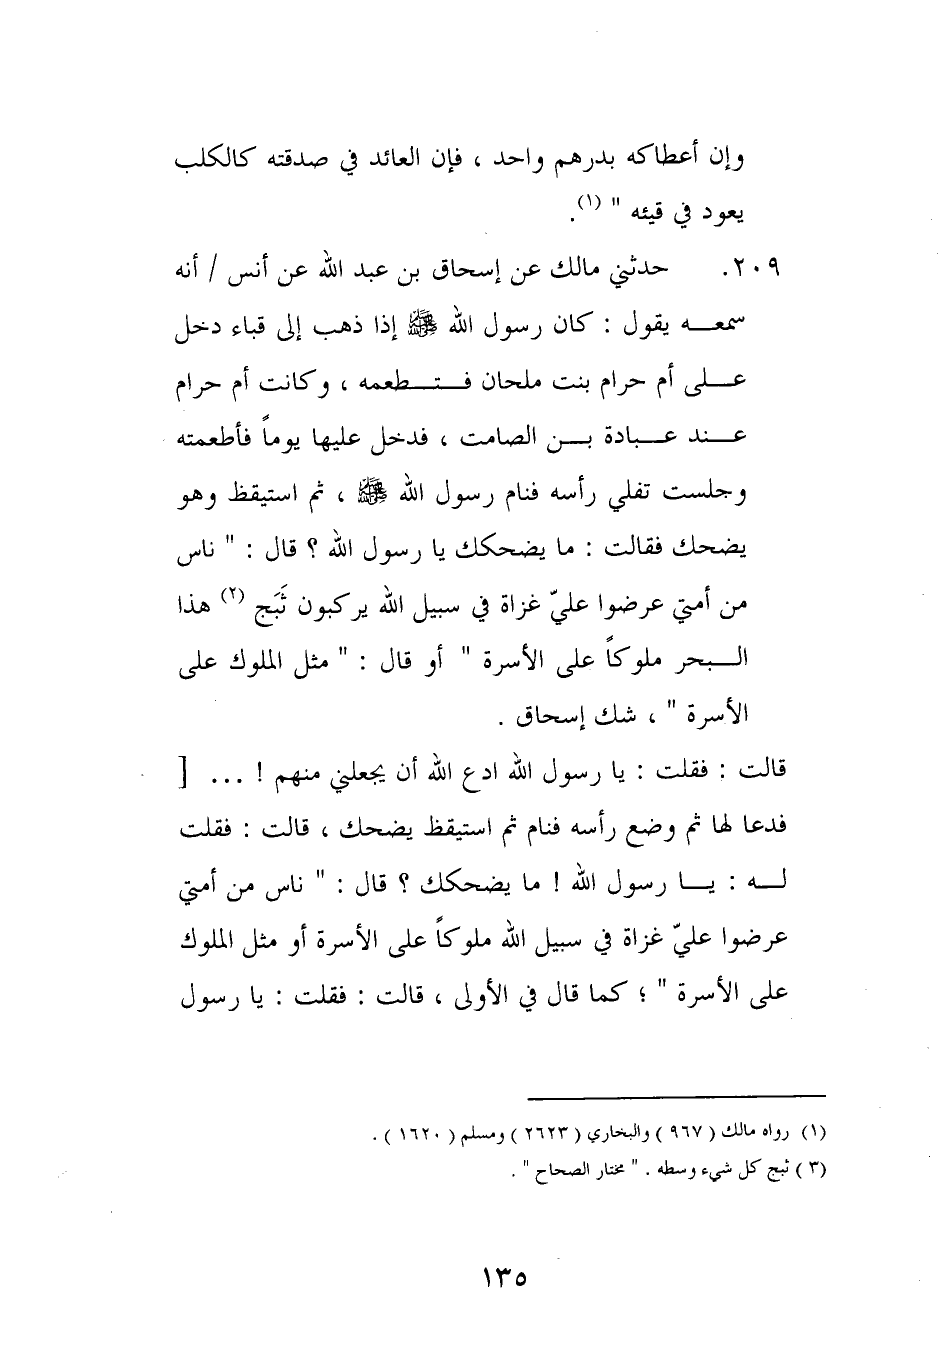 وإن أعطاكه بدرهم واحد ، فإن العائد في صدقته كالكلب
يعود في قيئه " (١).
٢٠٩. حدثني مالك عن إسحاق بن عبد الله عن أنس / أنه
سمعـــه يقول : كان رسول الله ﷺ إذا ذهب إلى قباء دخل
عـــلى أم حرام بنت ملحان فـــتـــطعمه ، وكانت أم حرام
عـــند عـــبادة بـــن الصامت ، فدخل عليها يوماً فأطعمته
وجلست تفلي رأسه فنام رسول الله ﷺ ، ثم استيقظ وهو
يضحك فقالت : ما يضحكك يا رسول الله ؟ قال : " ناس
من أمتي عرضوا عليّ غزاة في سبيل الله يركبون ثَبَج (٢) هذا
الـــبحر ملوكاً على الأسرة " أو قال : " مثل الملوك على
الأسرة " ، شك إسحاق .
قالت : فقلت : يا رسول الله ادع الله أن يجعلني منهم ! ... [
فدعا لها ثم وضع رأسه فنام ثم استيقظ يضحك ، قالت : فقلت
لـــه : يـــا رسول الله ! ما يضحكك ؟ قال : " ناس من أمتي
عرضوا عليّ غزاة في سبيل الله ملوكاً على الأسرة أو مثل الملوك
على الأسرة " ؛ كما قال في الأولى ، قالت : فقلت : يا رسول
(١) رواه مالك ( ٩٦٧ ) والبخاري ( ٢٦٢٣ ) ومسلم ( ١٦٢٠ ) .
(٣ ) ثبج كل شيء وسطه . " مختار الصحاح " .
١٣٥